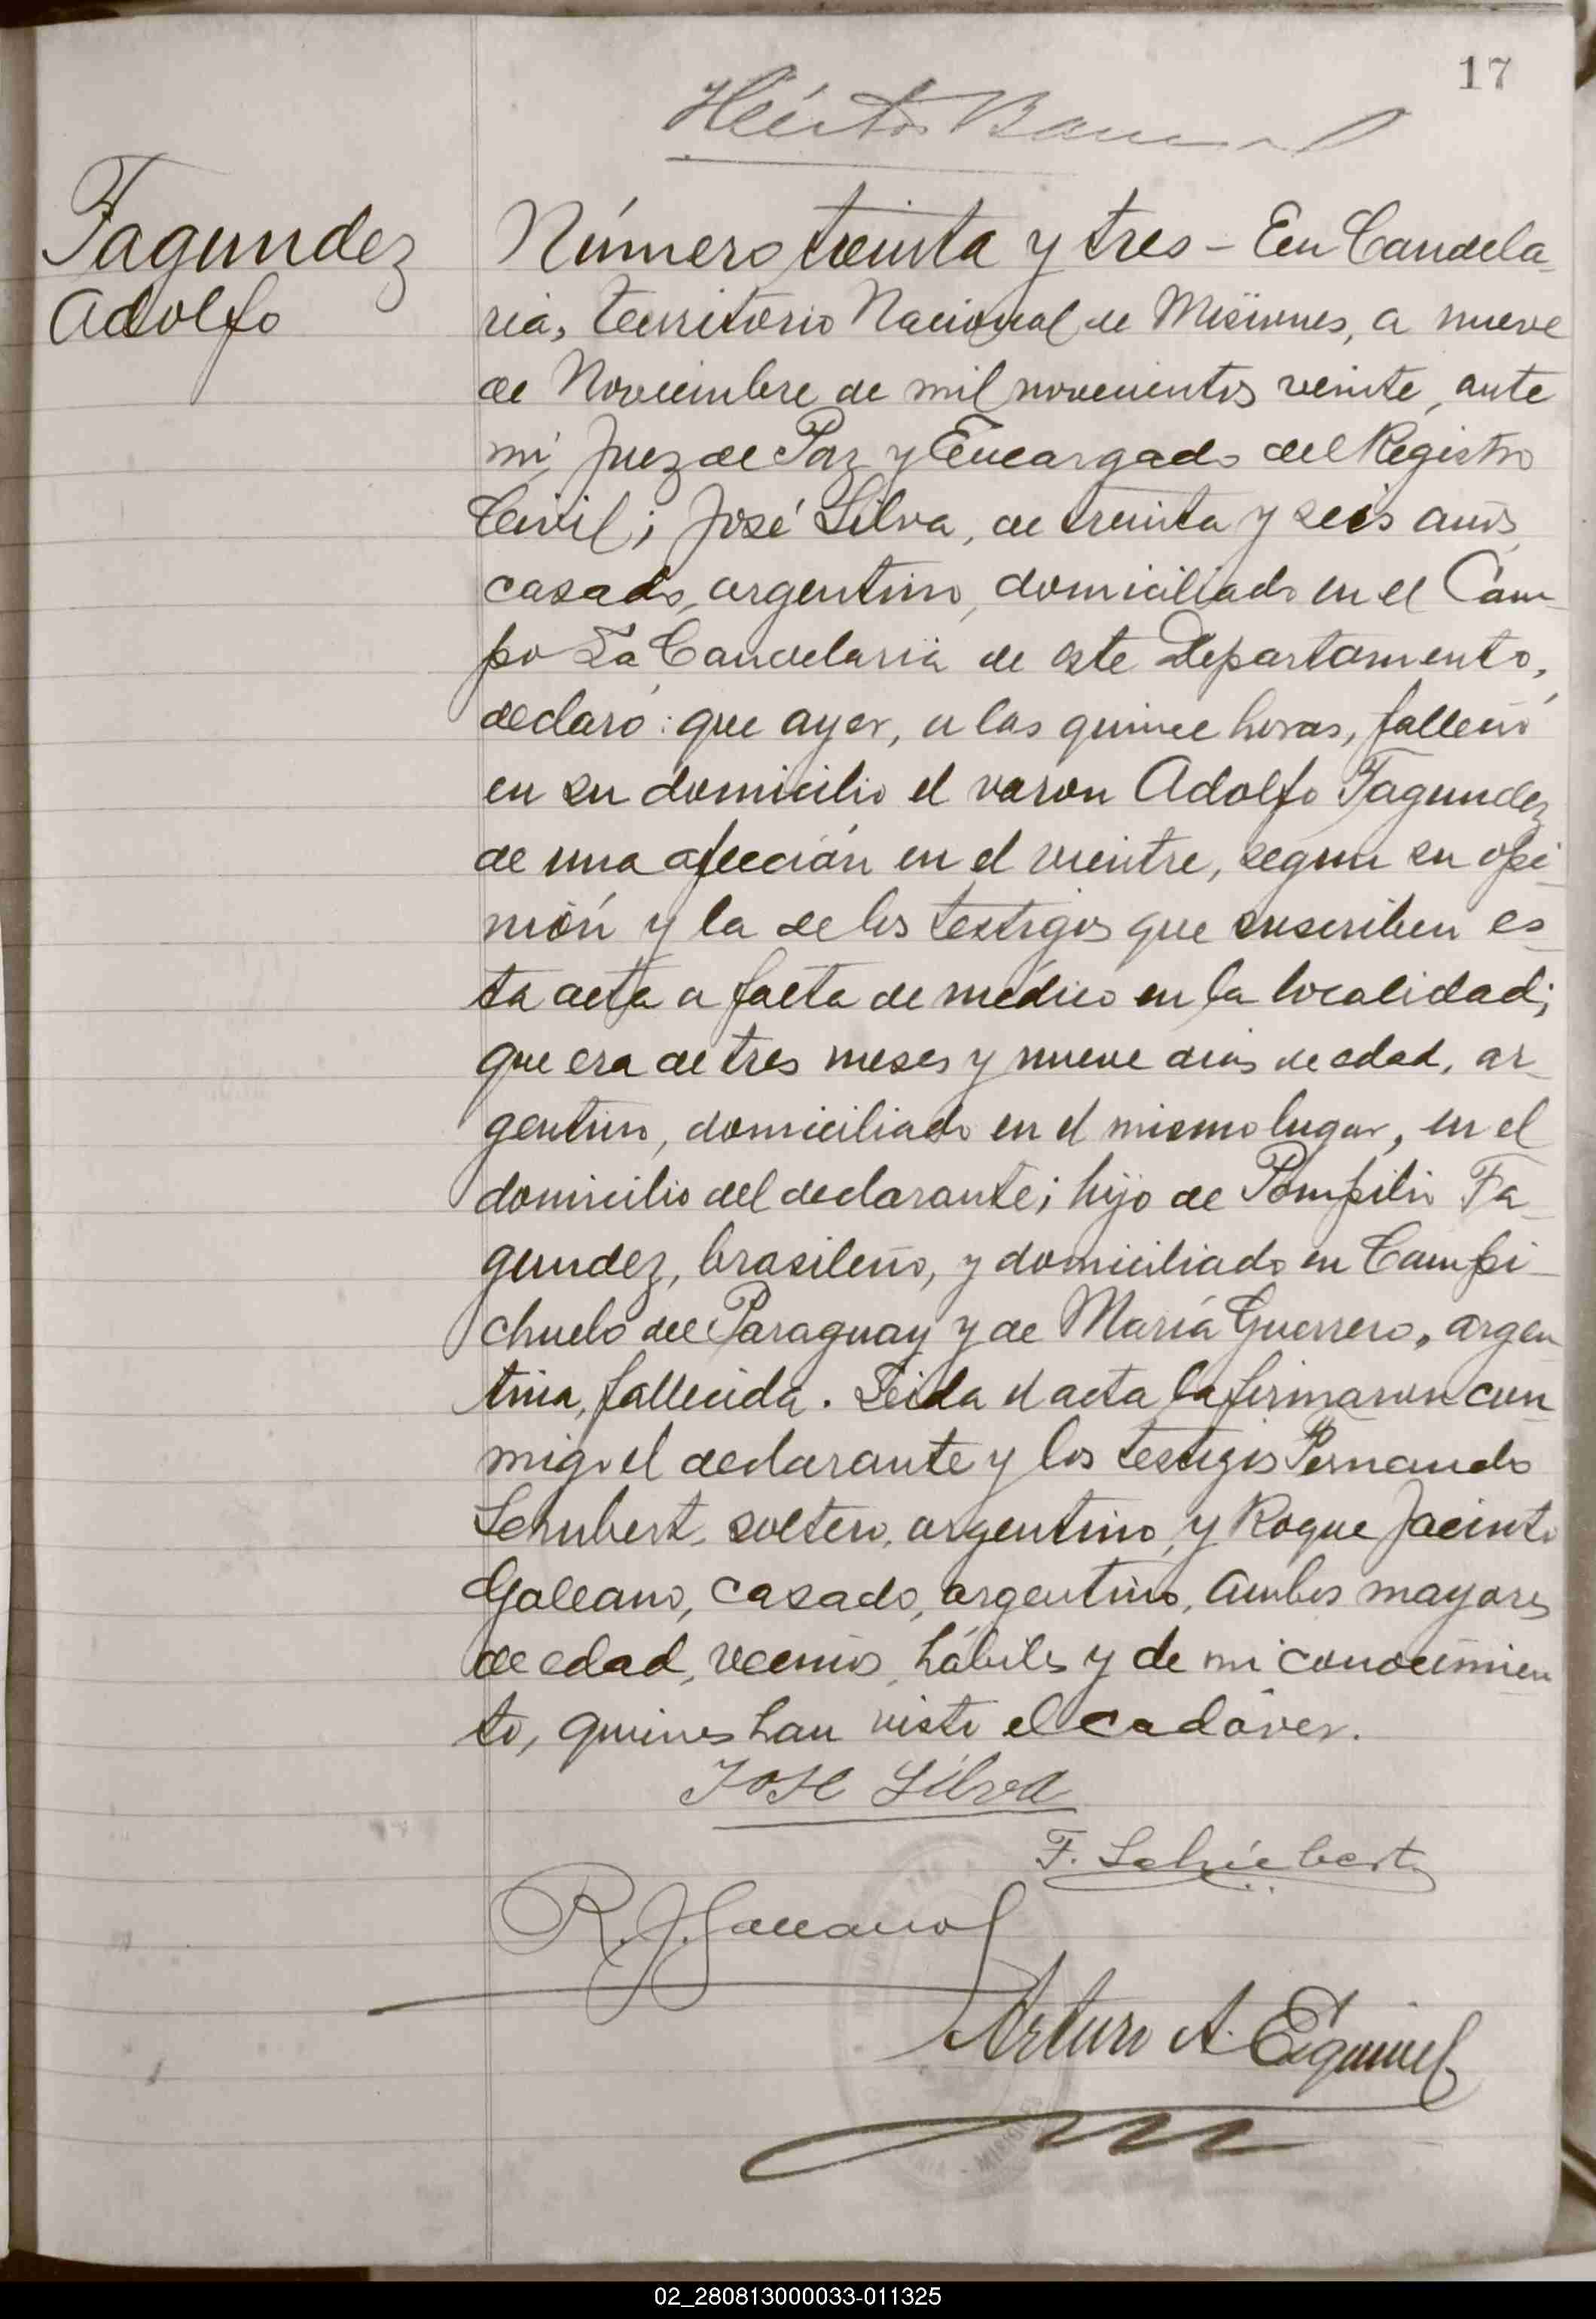 17
Héctor
Fagundez
Adolfo
Número treinta y tres - En Candela-
ria, territorio Nacional de Misiones, a nueve
de Noviembre de mil novecientos veinte, ante
mí, Juez de Paz y Encargado del Registro
Civil; José Silva, de treinta y seis años,
casado, argentino, domiciliado en el Cam-
po La Candelaria de este Departamento,
declaró: que ayer, a las quince horas, falleció
en su domicilio el varon Adolfo Fagundez
de una afección en el vientre, segun su opi-
nión y la de los testigos que suscriben es-
ta acta a falta de médico en la localidad;
que era de tres meses y nueve dias de edad, ar-
gentino, domiciliado en el mismo lugar, en el
domicilio del declarante; hijo de Pompilio Fa-
gundez, brasileño, y domiciliado en Campi-
chuelo del Paraguay y de María Guerrero, argen-
tina, fallecida. Leida el acta la firmaron con-
migo el declarante y los testigos Fernando
Schubert, soltero, argentino, y Roque Jacinto
Galeano, casado, argentino, ambos mayores
de edad, vecinos, hábiles y de mi conocimien-
to, quienes han visto el cadáver.
JOSE Silva
F. Schiebert
R. J. Galeano
Arturo A. Esquivel
MISIONES
02_280813000033-011325